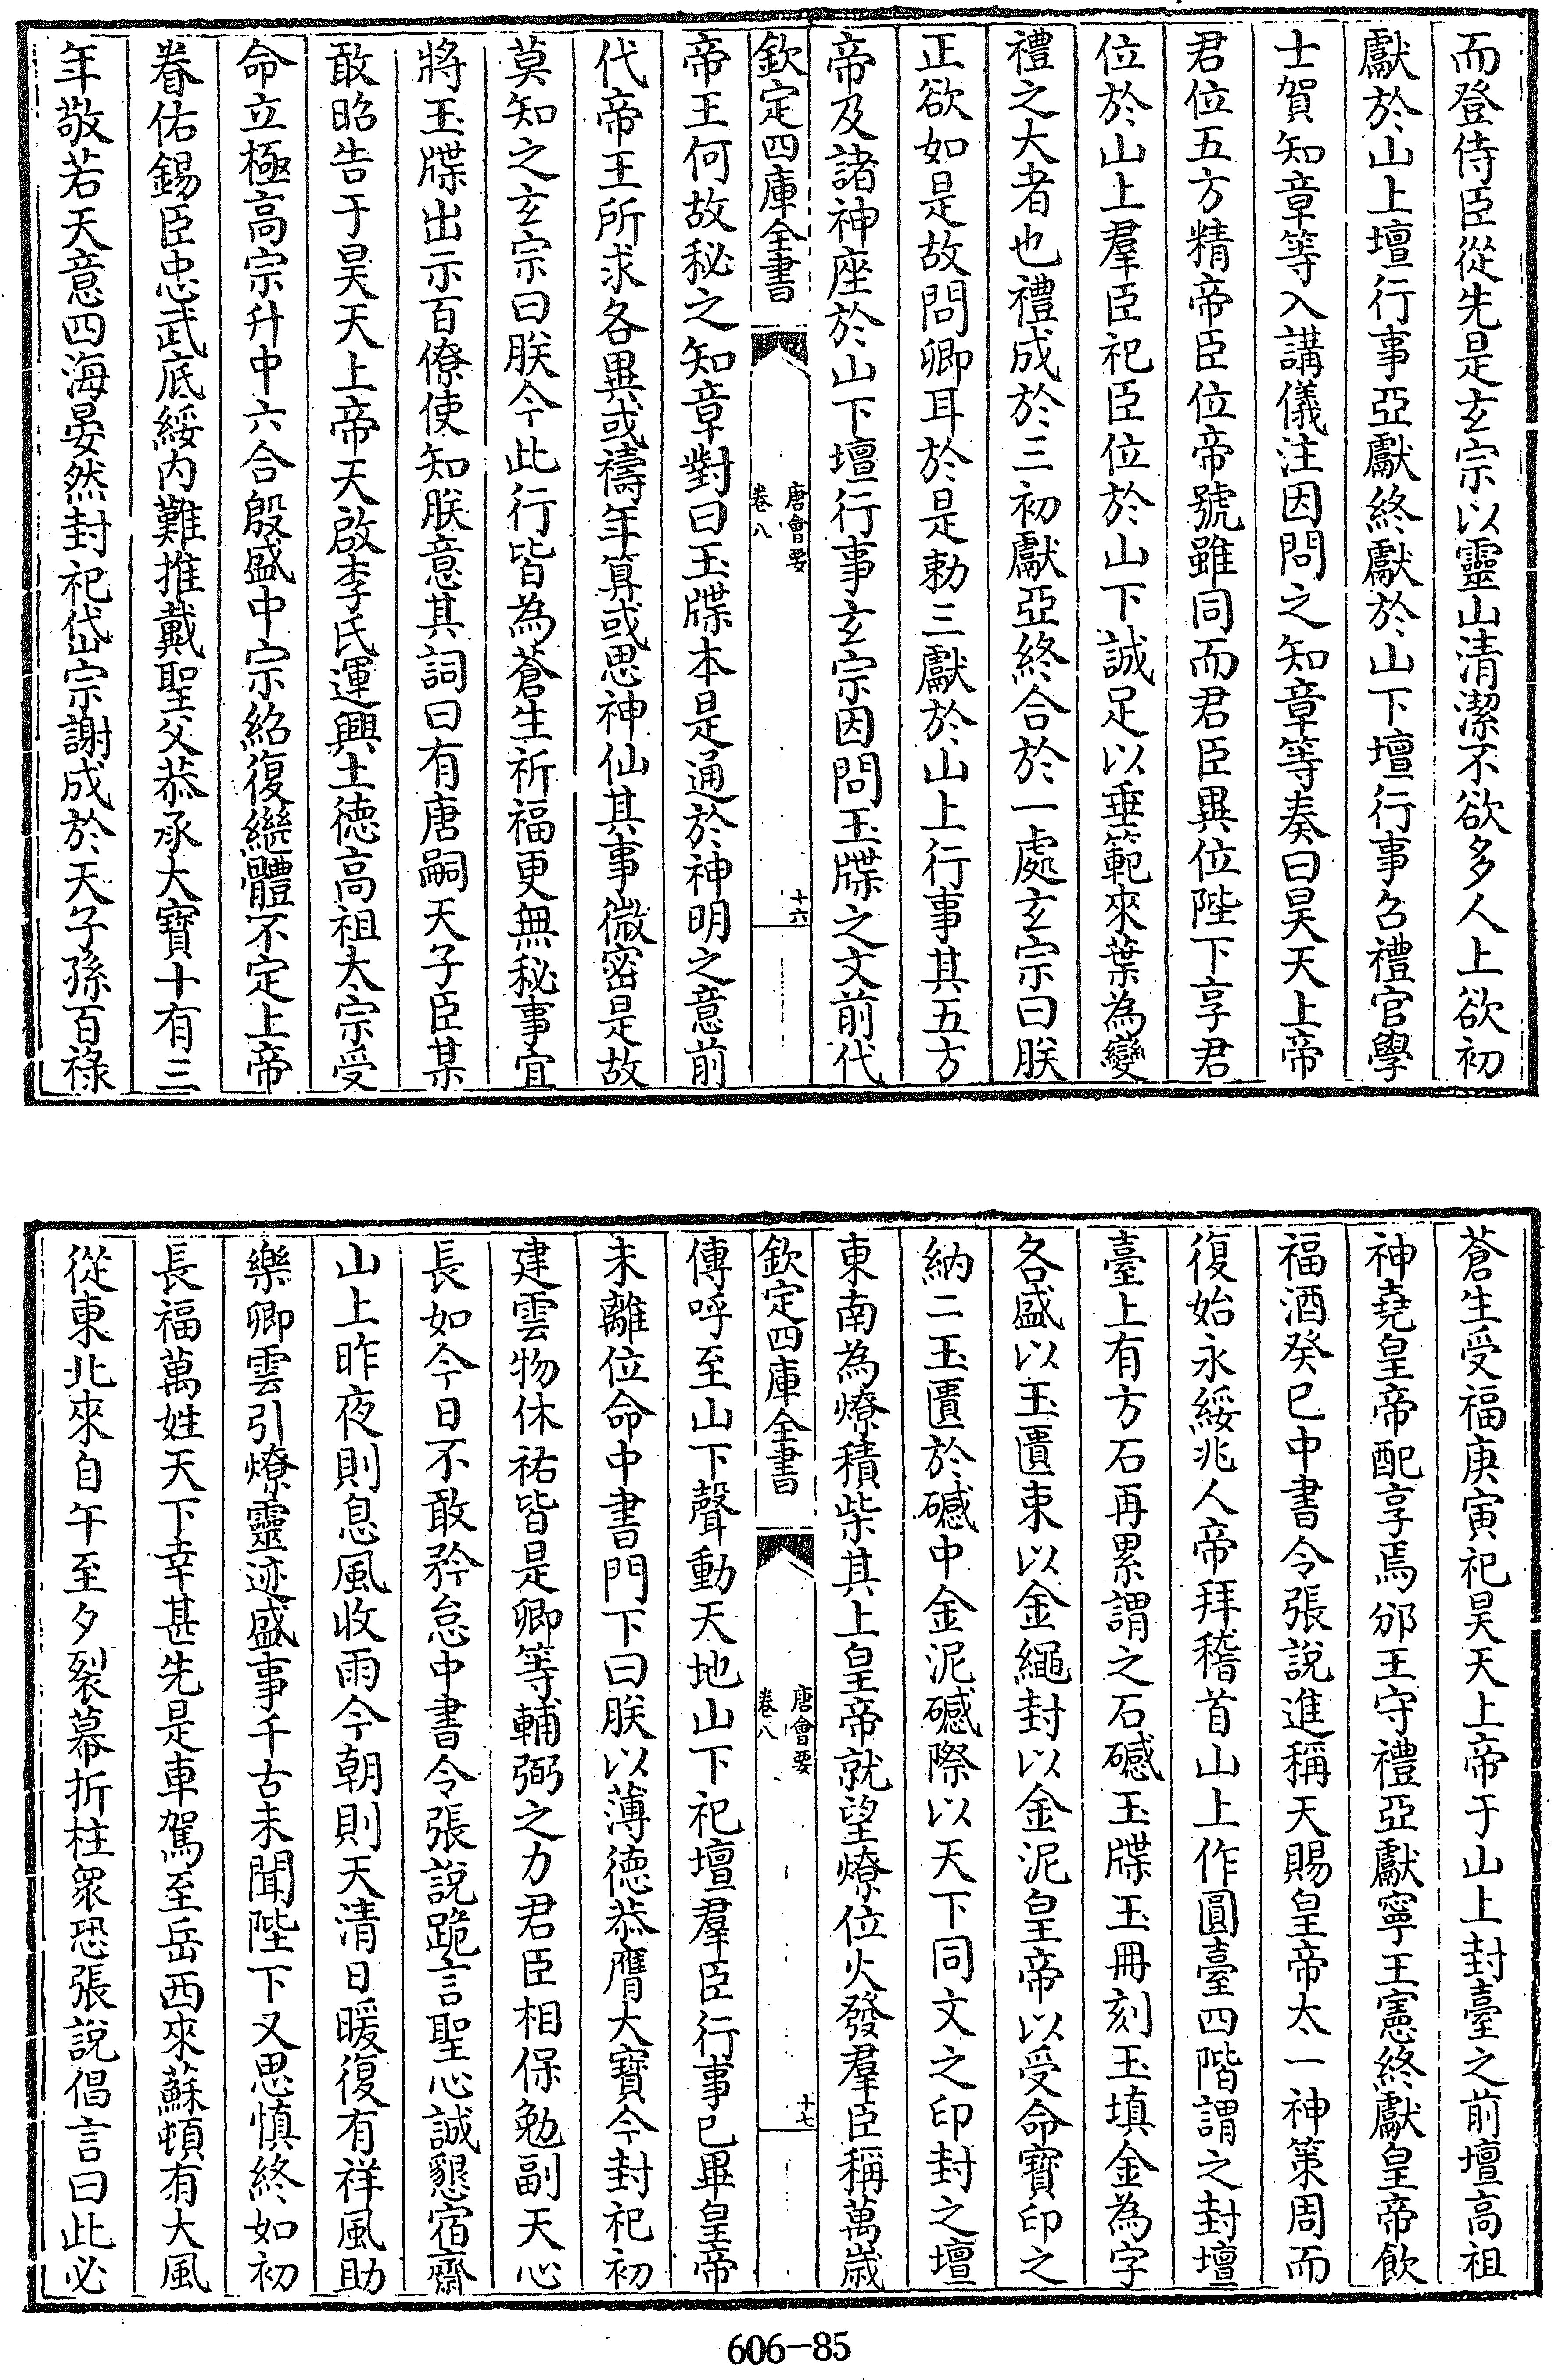 而登侍臣從先是玄宗以靈山清潔不欲多人上欲初
獻於山上壇行事亞獻終獻於山下壇行事召禮官學
士賀知章等入講儀注因問之知章等奏曰昊天上帝
君位五方精帝臣位帝號雖同而君臣異位陛下享君
位於山上羣臣祀臣位於山下誠足以垂範來葉為變
禮之大者也禮成於三初獻亞終合於一處玄宗曰朕
正欲如是故問卿耳於是勅三獻於山上行事其五方
帝及諸神座於山下壇行事玄宗因問玉牒之文前代
欽定四庫全書
唐會要
卷八
十六
帝王何故秘之知章對曰玉牒本是通於神明之意前
代帝王所求各異或禱年算或思神仙其事微密是故
莫知之玄宗曰朕今此行皆為蒼生祈福更無秘事宜
將玉牒出示百僚使知朕意其詞曰有唐嗣天子臣某
敢昭告于昊天上帝天啟李氏運興土德高祖太宗受
命立極高宗升中六合殷盛中宗紹復繼體不定上帝
眷佑錫臣忠武底綏內難推戴聖父恭承大寶十有三
年敬若天意四海晏然封祀岱宗謝成於天子孫百祿
蒼生受福庚寅祀昊天上帝于山上封臺之前壇高祖
神堯皇帝配享焉邠王守禮亞獻寧王憲終獻皇帝飲
福酒癸巳中書令張說進稱天賜皇帝太一神策周而
復始永綏兆人帝拜稽首山上作圓臺四階謂之封壇
臺上有方石再累謂之石䃭玉牒玉冊刻玉填金為字
各盛以玉匱束以金繩封以金泥皇帝以受命寶印之
納二玉匱於䃭中金泥䃭際以天下同文之印封之壇
東南為燎積柴其上皇帝就望燎位火發羣臣稱萬歲
欽定四庫全書
唐會要
卷八
十七
傳呼至山下聲動天地山下祀壇羣臣行事已畢皇帝
未離位命中書門下曰朕以薄德恭膺大寶今封祀初
建雲物休祐皆是卿等輔弼之力君臣相保勉副天心
長如今日不敢矜怠中書令張說跪言聖心誠懇宿齋
山上昨夜則息風收雨今朝則天清日暖復有祥風助
樂卿雲引燎靈迹盛事千古未聞陛下又思慎終如初
長福萬姓天下幸甚先是車駕至岳西來蘇頓有大風
從東北來自午至夕裂幕折柱眾恐張說倡言曰此必
606-85